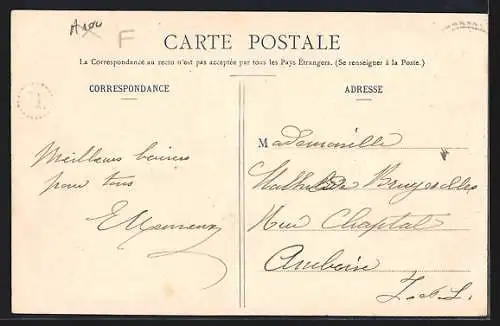 A100
F
CARTE POSTALE
La Correspondance au recto n'est pas acceptée par tous les Pays Étrangers. (Se renseigner à la Poste.)
CORRESPONDANCE
ADRESSE
Meilleurs baisers
pour tous
Mademoiselle
Mathilde Bruyselles
Rue Chaptal
Amboise
I. & L.